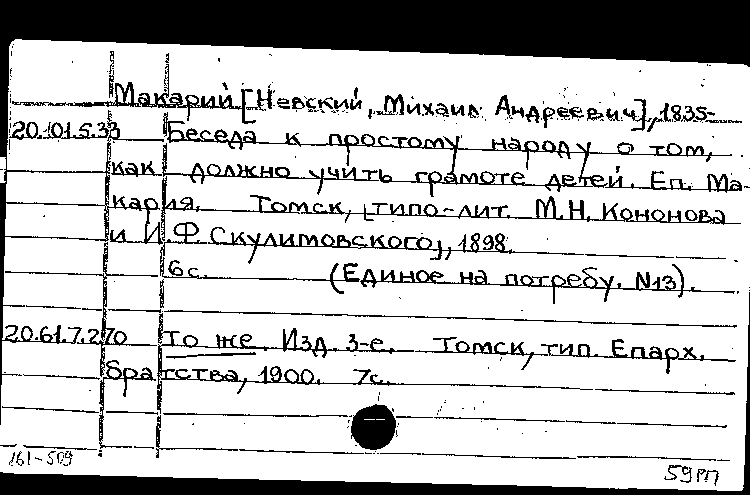 Макарий [Невский, Михаил Андреевич], 1835-
20.101.5.33 Беседа к простому народу о том,
как должно учить грамоте детей. Еп. Ма-
кария. Томск, [типо-лит. М.Н. Кононова
и И.Ф. Скулимовского], 1898.
6 с. (Единое на потребу. N13).
20.61.7.270 То же. Изд. 3-е. Томск, тип. Епарх.
братства, 1900. 7с.
161-509